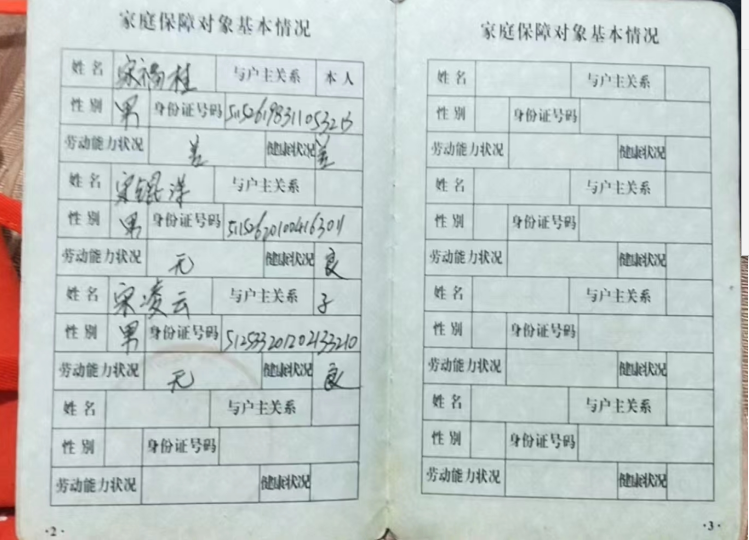 家庭保障对象基本情况
姓名 宋福桂 与户主关系 本人
性别 男 身份证号码
劳动能力状况 差 健康状况 差
姓名 宋锟洋 与户主关系
性别 男 身份证号码 511506201004163011
劳动能力状况 无 健康状况 良
姓名 宋凌云 与户主关系 子
性别 男 身份证号码 512533201202133210
劳动能力状况 无 健康状况 良
姓名 与户主关系
性别 身份证号码
劳动能力状况 健康状况
·2·
家庭保障对象基本情况
姓名 与户主关系
性别 身份证号码
劳动能力状况 健康状况
姓名 与户主关系
性别 身份证号码
劳动能力状况 健康状况
姓名 与户主关系
性别 身份证号码
劳动能力状况 健康状况
姓名 与户主关系
性别 身份证号码
劳动能力状况 健康状况
·3·